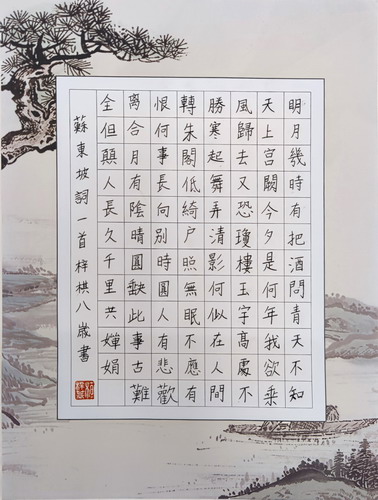 明月幾時有把酒問青天不知
天上宮闕今夕是何年我欲乘
風歸去又恐瓊樓玉宇高處不
勝寒起舞弄清影何似在人間
轉朱閣低綺户照無眠不應有
恨何事長向別時圓人有悲歡
离合月有陰晴圓缺此事古難
全但願人長久千里共嬋娟
蘇東坡詞一首梓棋八歲書